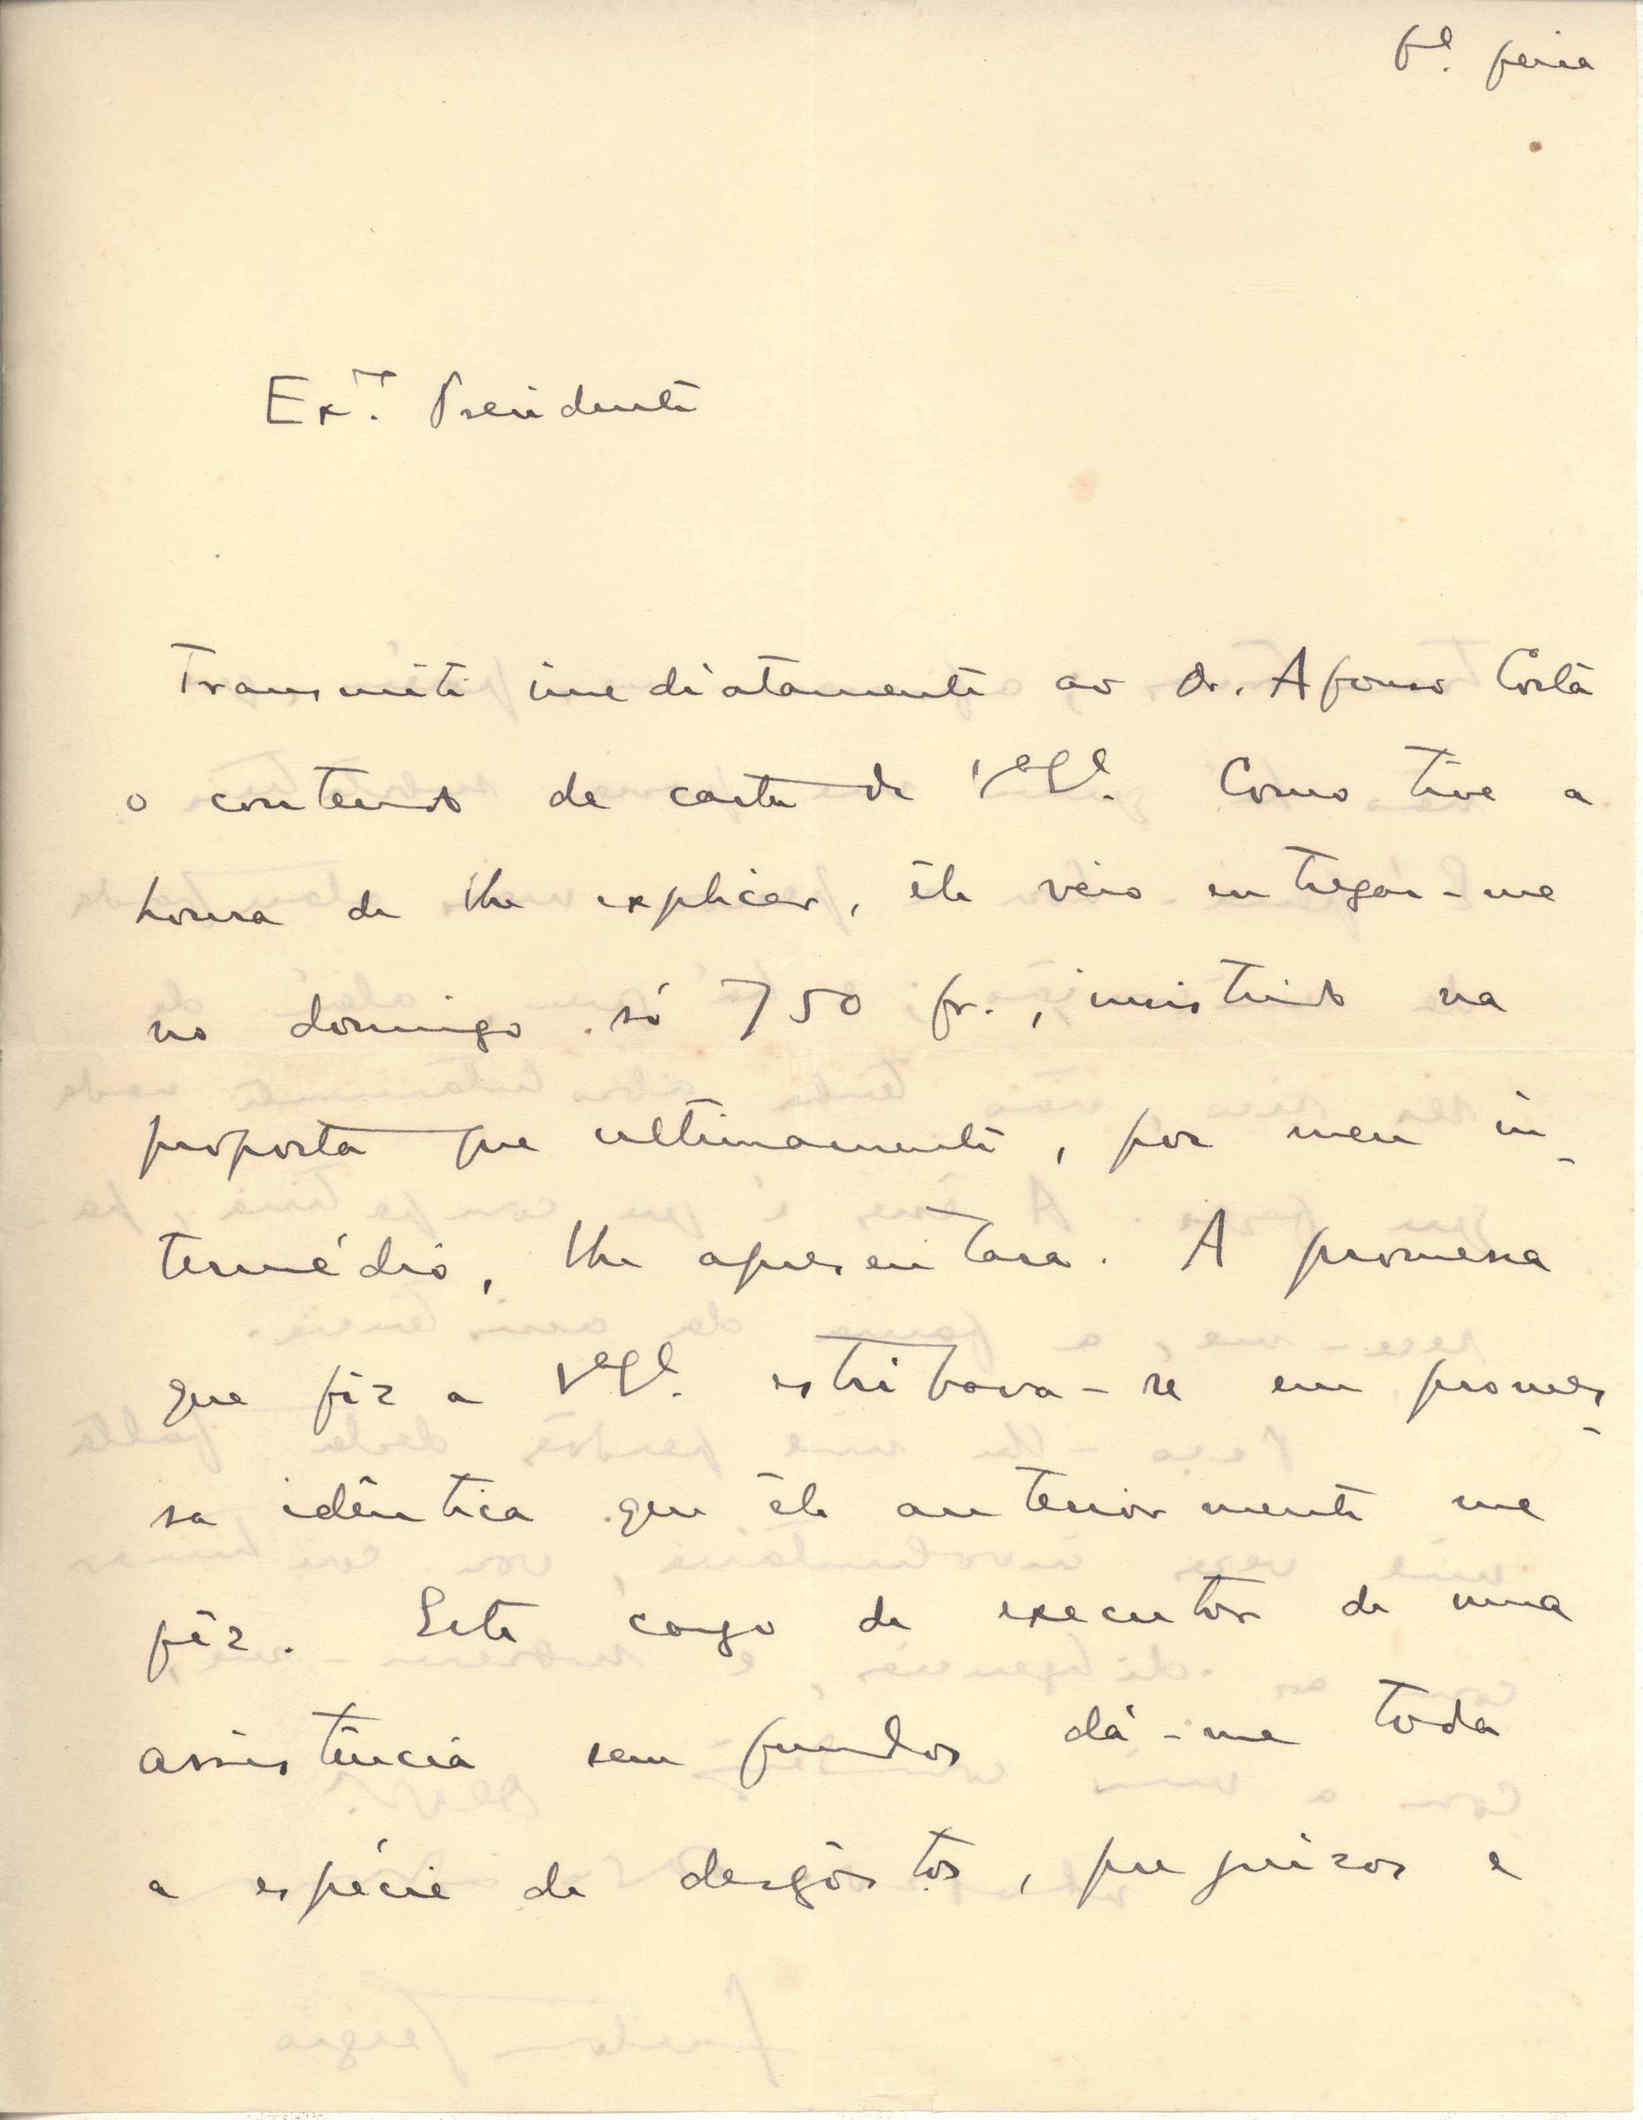 feria
Ex.mo Presidente
Transmiti imediatamente ao dr. Afonso Costa
o conteudo da carta de V. Ex.ª. Como tive a
honra de lhe explicar, êle veio entregar-me
no domingo só 750 fr., insistindo na
proposta que ultimamente, por meu in-
termédio, lhe apresentara. A promessa
que fiz a V. Ex.ª. estribava-se em promes-
sa idêntica que êle anteriormente me
fêz. Este cargo de executor de uma
assistência sem fundos dá-me toda
a espécie de desgôstos, prejuizos e